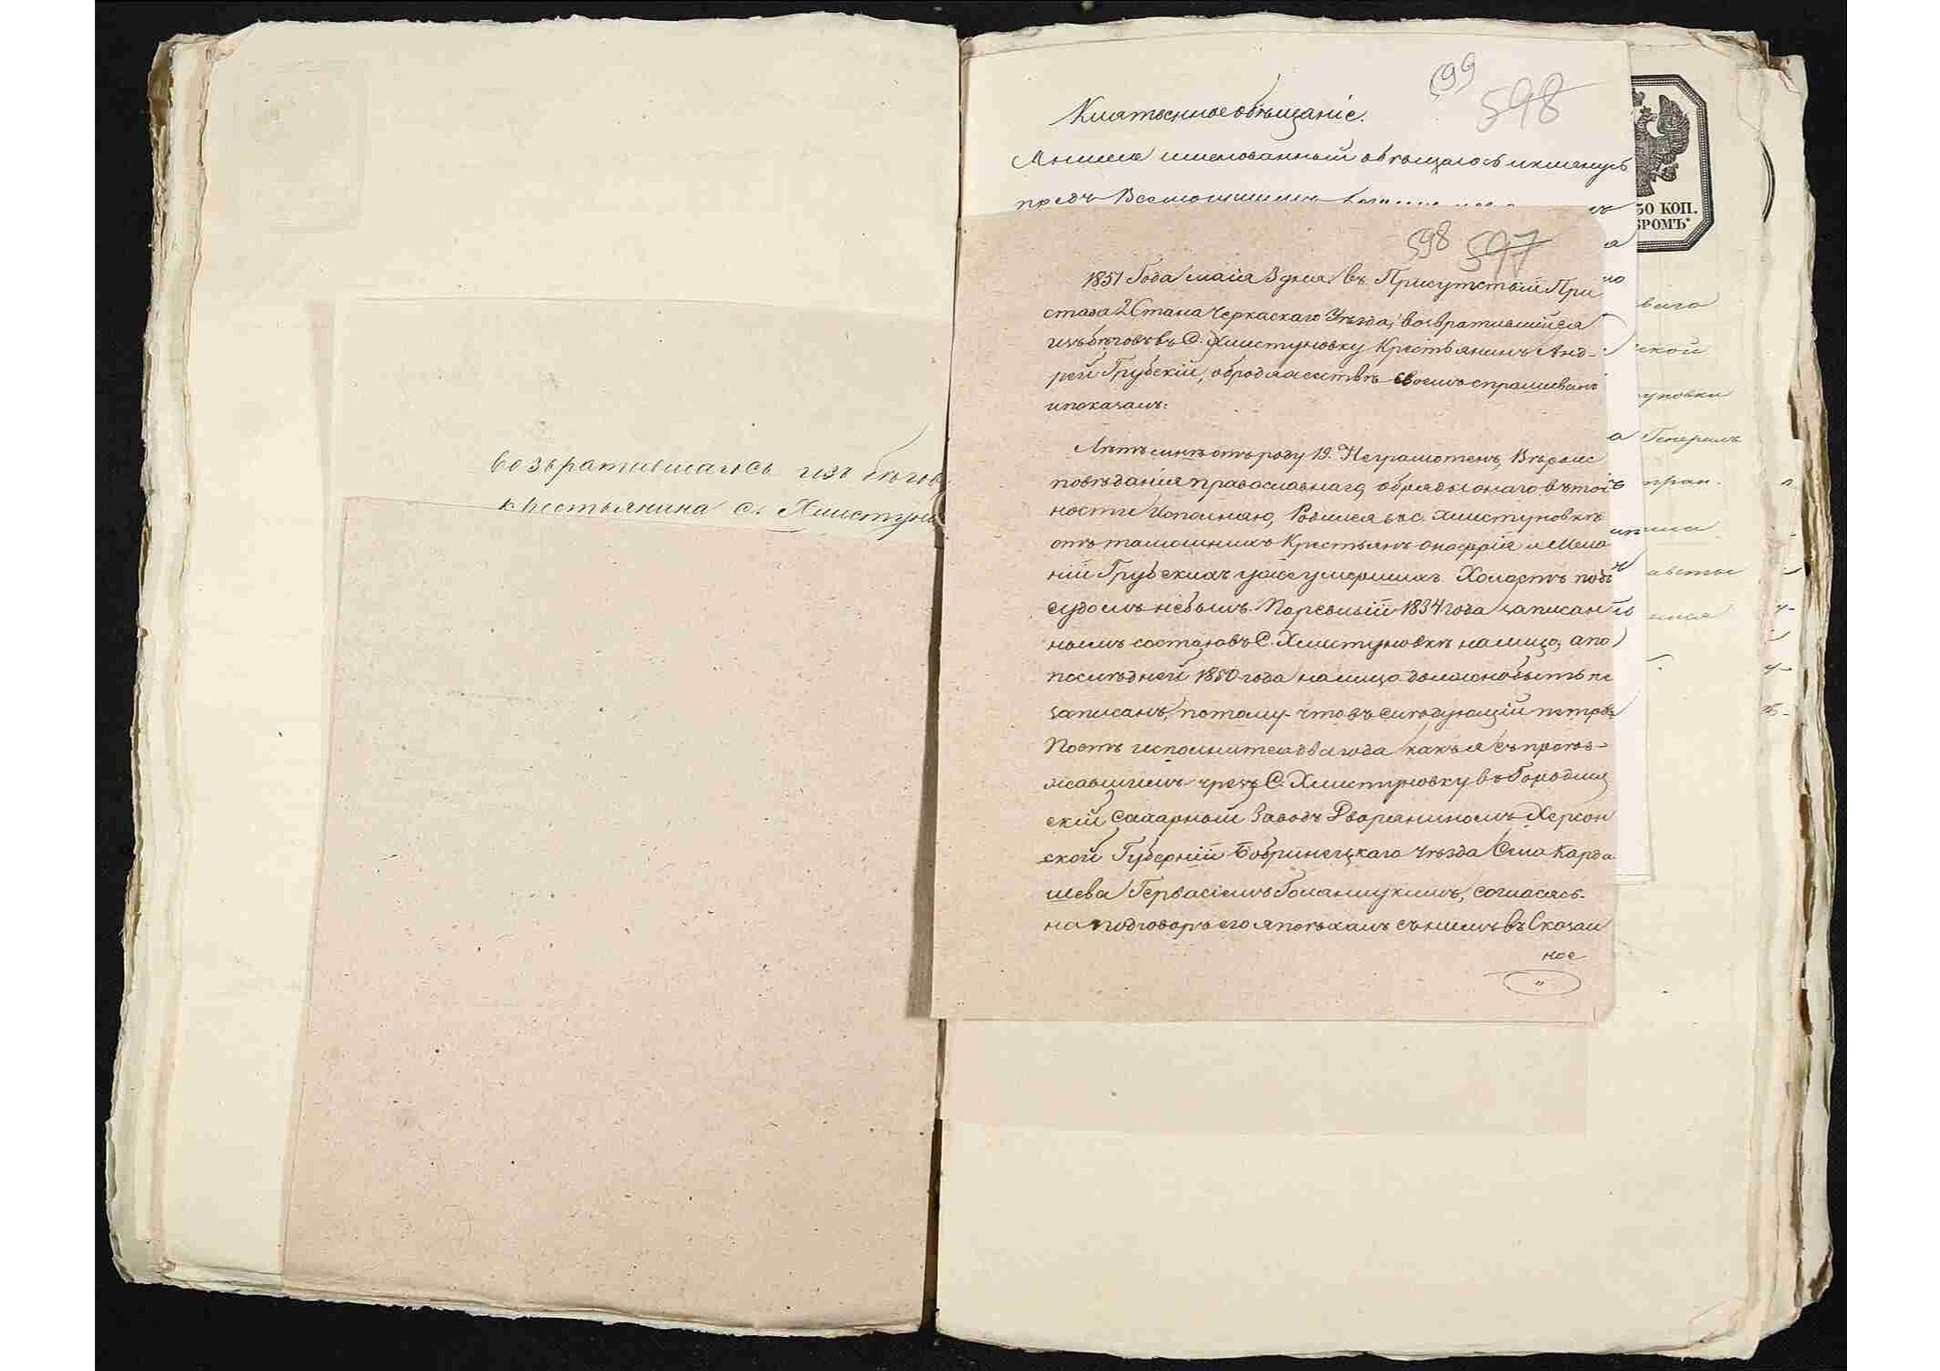 возвратившагось изъ бѣгов
крестьянина с. Хлистун
599
598
Клятвенное обѣщаніе.
Я ниже именованный обѣщаюсь и клянусь
предъ Всемогущимъ
50 КОП.
БРОМЪ
598 597
1851 Года мая 3 дня въ Присутствіи При
става 2 Стана Черкаскаго Уѣзда, возвратившійся
изъ бѣговъ въ С. Хлистуновку Крестьянинъ Анд-
рей Грубскій, о бродяжествѣ своемъ спрашиванъ
и показалъ:
Лѣтъ мнѣ отъ роду 19. Неграмотенъ, Вѣроис
повѣданія православнаго, обряды онаго въ точ
ности исполняю, Родился въ с. Хлистуновкѣ
отъ тамошнихъ Крестьянъ Онофрія и Мела
ніи Грубскихъ уже умершихъ. Холостъ подъ
судомъ небылъ. По ревизіи 1834 года записан
нымъ состою въ С. Хлистуновкѣ на лицо, а по
послѣдней 1850 года на лицо должно быть не
записанъ, потому-что въ слѣдующій петровъ
Постъ исполнится два года какъ я съ проѣз-
жавшимъ чрезъ С. Хлистуновку въ Городищ
скій Сахарный Заводъ Дворяниномъ Херсон
ской Губерніи Бобринецкаго Уѣзда Села Карда
шева Гервасіемъ, согласясь
на подговоръ его я поѣхалъ съ нимъ въ Сказан
ное
ваго
ской
уновки
Генералъ